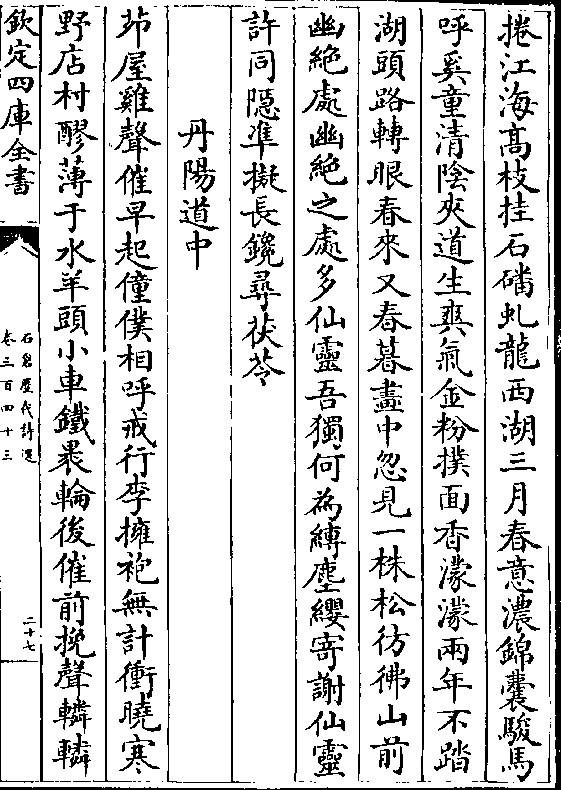 捲江海高枝挂石磻虬龍西湖三月春意濃錦囊駿馬
呼奚童清陰夾道生爽氣金粉撲面香濛濛兩年不踏
湖頭路轉眼春來又春暮畫中忽見一株松彷彿山前
幽絶處幽絶之處多仙靈吾獨何為縛塵纓寄謝仙靈
許同隠凖擬長鑱尋茯苓
丹陽道中
茆屋雞聲催早起僮僕相呼戒行李擁袍無計衝曉寒
野店村醪薄于水羊頭小車鐵裹輪後催前挽聲轔轔
欽定四庫全書
石倉歴代詩選
卷三百四十三
二十七